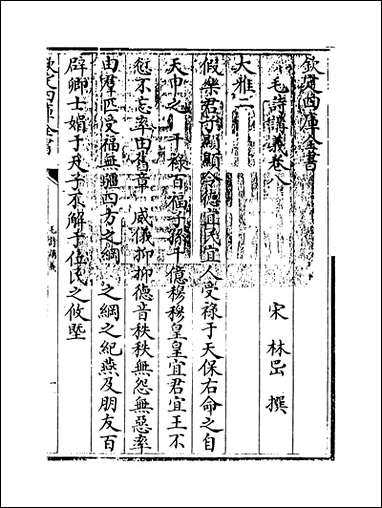 欽定四庫全書
毛詩講義卷八
宋 林岊 撰
大雅二
假樂君子顯顯令德宜民宜人受祿于天保右命之自
天申之 干祿百福子孫千億穆穆皇皇宜君宜王不
愆不忘率由舊章 威儀抑抑德音秩秩無怨無惡率
由羣匹受福無疆四方之綱 之綱之紀燕及朋友百
辟卿士媚于天子不解于位民之攸塈
欽定四庫全書
毛詩講義
一